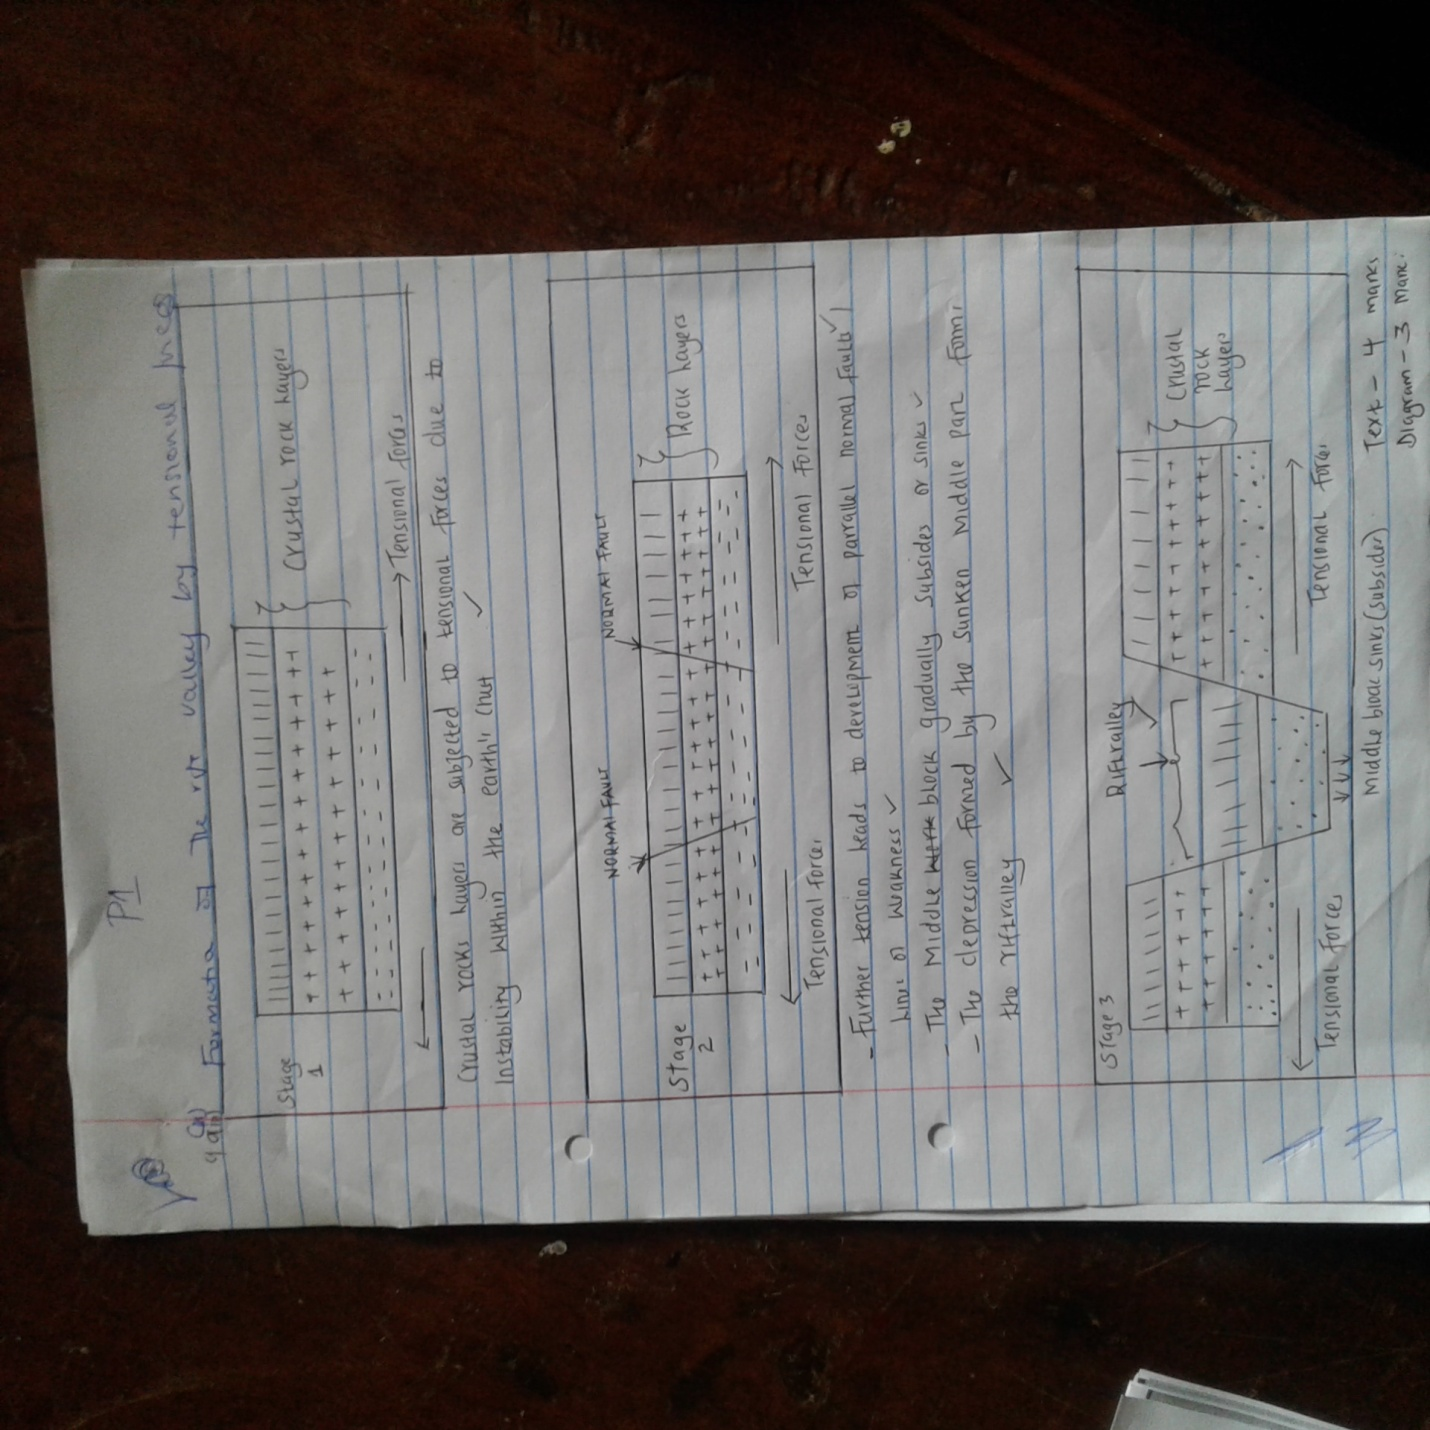 P1
Formation of The rift valley by tensional
Stage
1
Crustal rock layers
Tensional forces
Crustal rocks layers are subjected to tensional forces due to
Instability within the earth's
NORMAL FAULT
NORMAL FAULT
Stage
2
Rock layers
Tensional Forces
Tensional Forces
- Further tension leads to development of parralel normal faults
of weakness
- The Middle block gradually subsides or sinks
- The depression formed by the sunken Middle part form
the riftvalley
Stage 3
Riftvalley
Crustal
rock
layers
Tensional Forces
Tensional Forces
Middle block sinks (subsides)
Text - 4 marks
Diagram - 3 marks